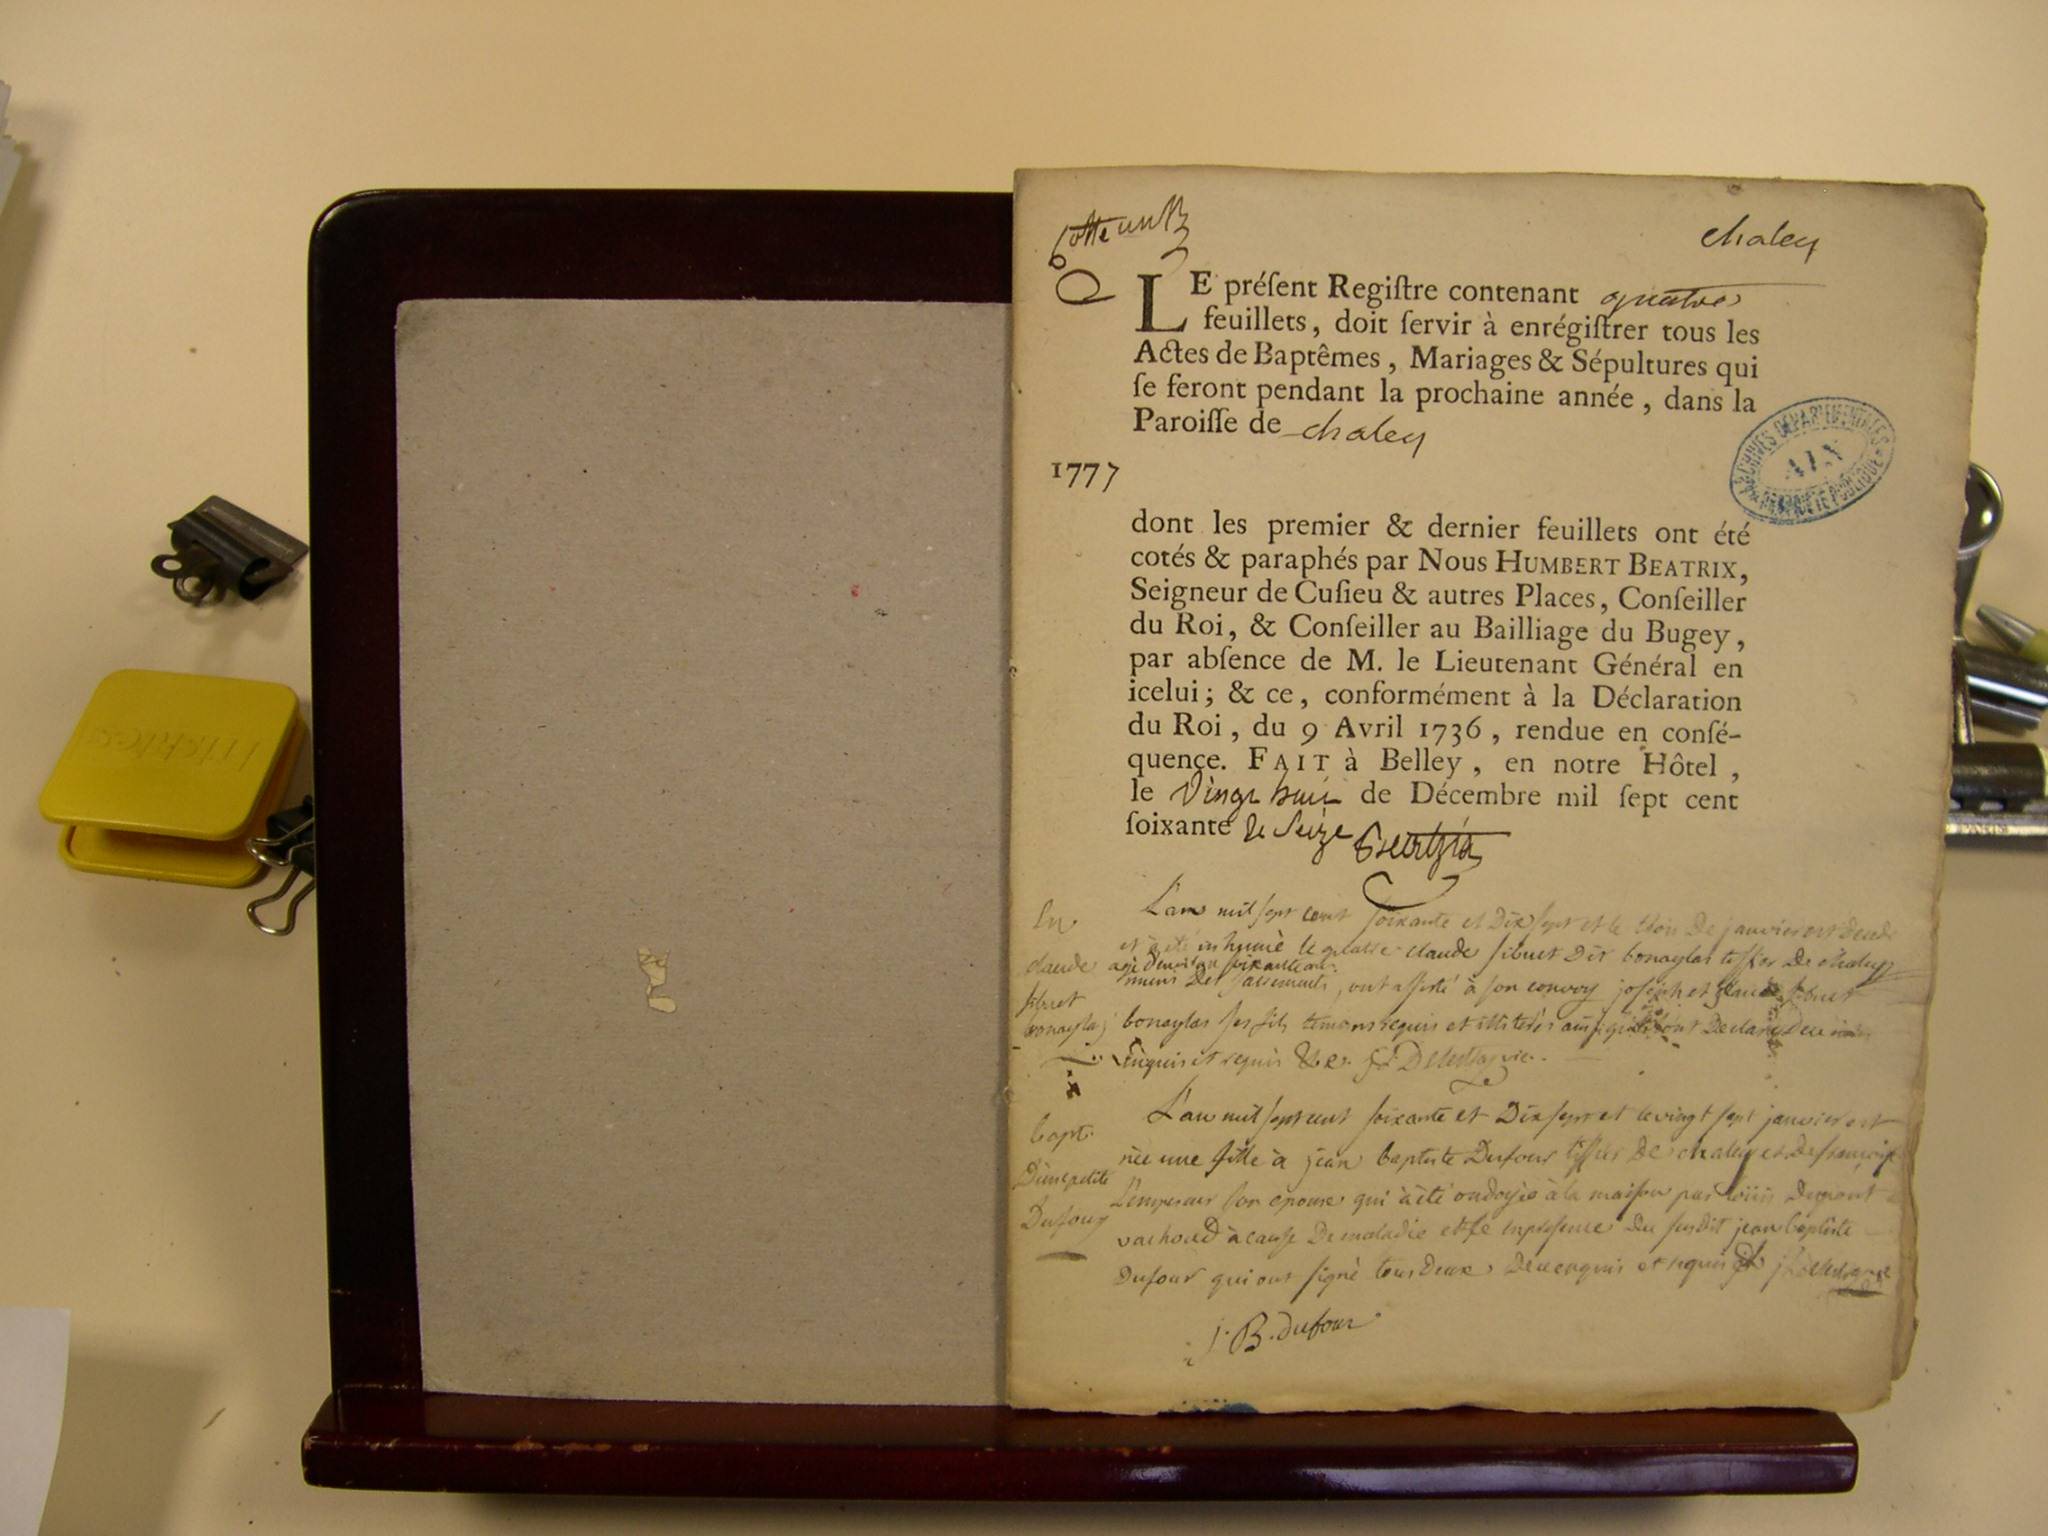 Cotte un
chaley
LE préſent Regiſtre contenant quatre
feuillets, doit ſervir à enrégiſtrer tous les
Actes de Baptêmes, Mariages & Sépultures qui
ſe feront pendant la prochaine année, dans la
Paroiſſe de chaley
1777
ARCHIVES DÉPARTEMENTALES
AIN
PROPRIÉTÉ PUBLIQUE
dont les premier & dernier feuillets ont été
cotés & paraphés par Nous HUMBERT BEATRIX,
Seigneur de Cuſieu & autres Places, Conſeiller
du Roi, & Conſeiller au Bailliage du Bugey,
par abſence de M. le Lieutenant Général en
icelui; & ce, conformément à la Déclaration
du Roi, du 9 Avril 1736, rendue en conſé-
quence. FAIT à Belley, en notre Hôtel,
le Vingt huit de Décembre mil ſept cent
ſoixante & Seize Beatrix
L'an mil sept cent soixante et Dix sept et le trois De janvier est decede
et a été inhumé le quatre claude sibuet Dit bonaglas De chaley
agé d'environ soixante ans
muni Des sacrements, ont assisté à son convoy joseph et claude sibuet
bonaglas ses fils temoins requis et illiterés ainsi qu'ils ont Declaré
Enquis et requis
claude
sibuet
bonaglas
L'an mil sept cent soixante et Dix sept et le vingt sept janvier est
née une fille à jean baptiste Dufour De chaley et De françoise
L'empereur son epouse qui à été ondoyée à la maison par Dupont
vachoud à cause De maladie et ce en presence Du susdit jean baptiste
Dufour qui ont signé tous Deux De ce enquis et requis
bapt.
D'une petite
Dufour
j. B. dufour